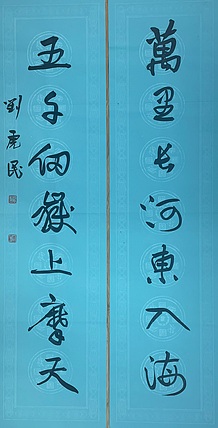 萬里長河東入海
五千仞嶽上摩天
劉虎民